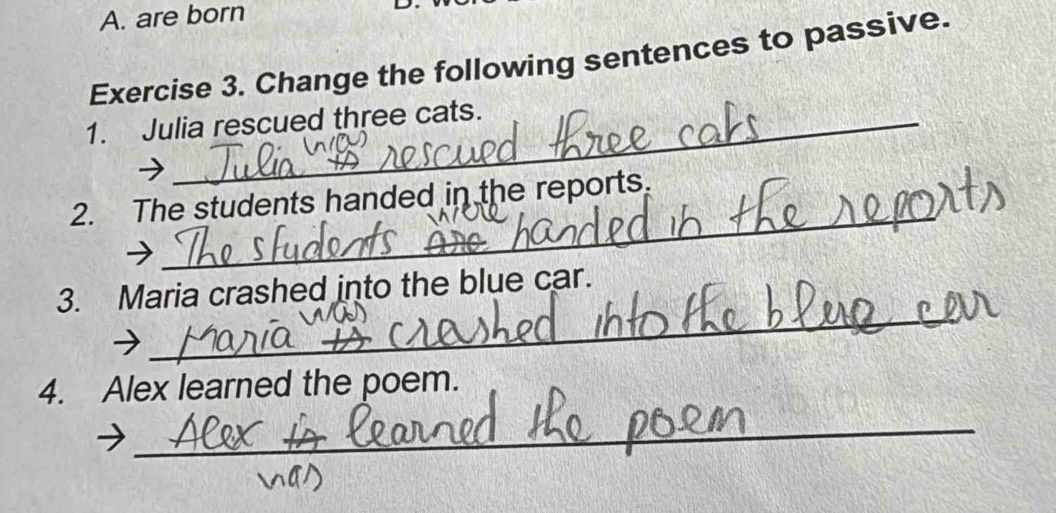 A. are born
Exercise 3. Change the following sentences to passive.
1. Julia rescued three cats.
→ Julia was rescued three cats
2. The students handed in the reports.
→ The students were handed in the reports
3. Maria crashed into the blue car.
→ Maria was crashed into the blue car
4. Alex learned the poem.
→ Alex is learned the poem
was